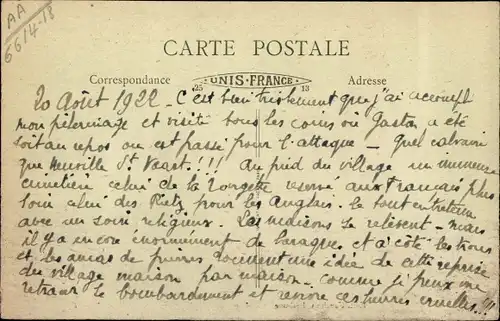 AA
6614-18
CARTE POSTALE
Correspondance
25 UNIS-FRANCE 13
Adresse
20 Août 1922 - C'est bien tristement que j'ai accompli
mon pèlerinage et visité tous les coins où Gaston a été
soit au repos ou est passé pour l'attaque - Quel calvaire
que Neuville St Vaast !!! Au pied du village un immense
cimetière celui de la Targette réservé aux Français plus
loin celui des Rietz pour les Anglais. Le tout entretenu
avec un soin religieux. Les maisons se relèvent - mais
il y a encore énormément de baraques et à côté les trous
et les amas de pierres donnent une idée de cette reprise
du village maison par maison - comme je peux me
retracer le bombardement et revivre ces heures cruelles !!!